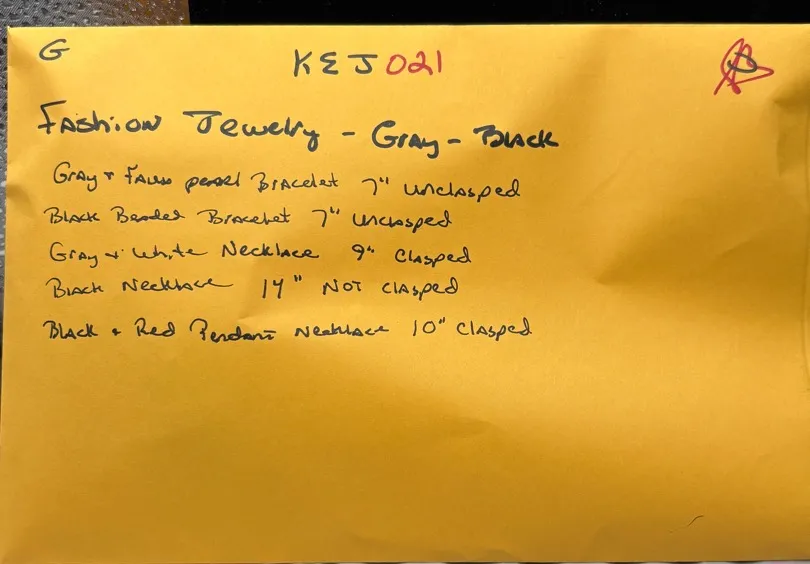 G
KEJ021
Fashion Jewelry - Gray - Black
Gray + Faux pearl Bracelet 7" unclasped
Black Beaded Bracelet 7" unclasped
Gray + White Necklace 9" clasped
Black Necklace 14" Not clasped
Black + Red Pendant Necklace 10" clasped